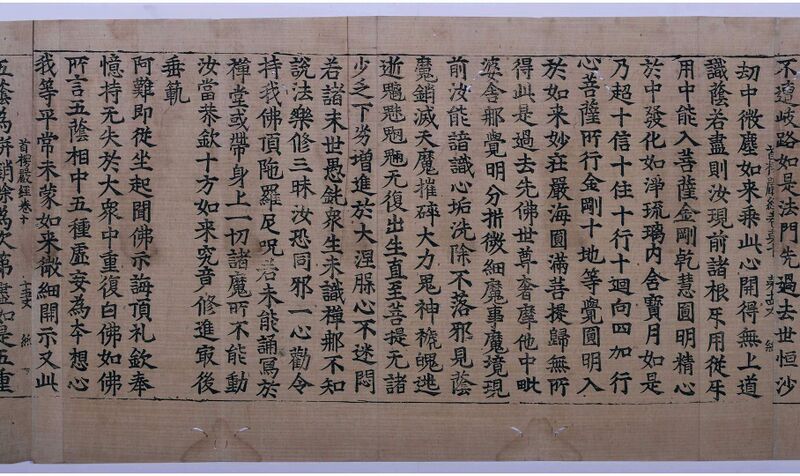 不遭歧路如是法門先過去世恒沙
刧中微塵如来乘此心開得無上道
識蔭若盡則汝現前諸根互用從互
用中能入菩薩金剛乾慧圓明精心
於中發化如淨琉璃内含寶月如是
乃超十信十住十行十迴向四加行
心菩薩所行金剛十地等覺圓明入
於如来妙莊嚴海圓滿菩提歸無所
得此是過去先佛世尊奢摩他中毗
婆舍那覺明分析微細魔事魔境現
前汝能諳識心垢洗除不落邪見蔭
魔銷滅天魔摧碎大力鬼神褫魄逃
逝魑魅魍魎无復出生直至菩提无諸
少乏下劣增進於大涅槃心不迷悶
若諸末世愚鈍衆生未識禪那不知
說法樂修三昧汝恐同邪一心勸令
持我佛頂陁羅尼呪若未能誦寫於
禪堂或帶身上一切諸魔所不能動
汝當恭欽十方如来究竟修進㝡後
垂範
阿難即從坐起聞佛示誨頂礼欽奉
憶持无失於大衆中重復白佛如佛
所言五蔭相中五種虛妄為本想心
我等平常未蒙如来微細開示又此
首楞嚴經卷十 十五丈 絲
五蔭為并銷除為次第盡如是五重